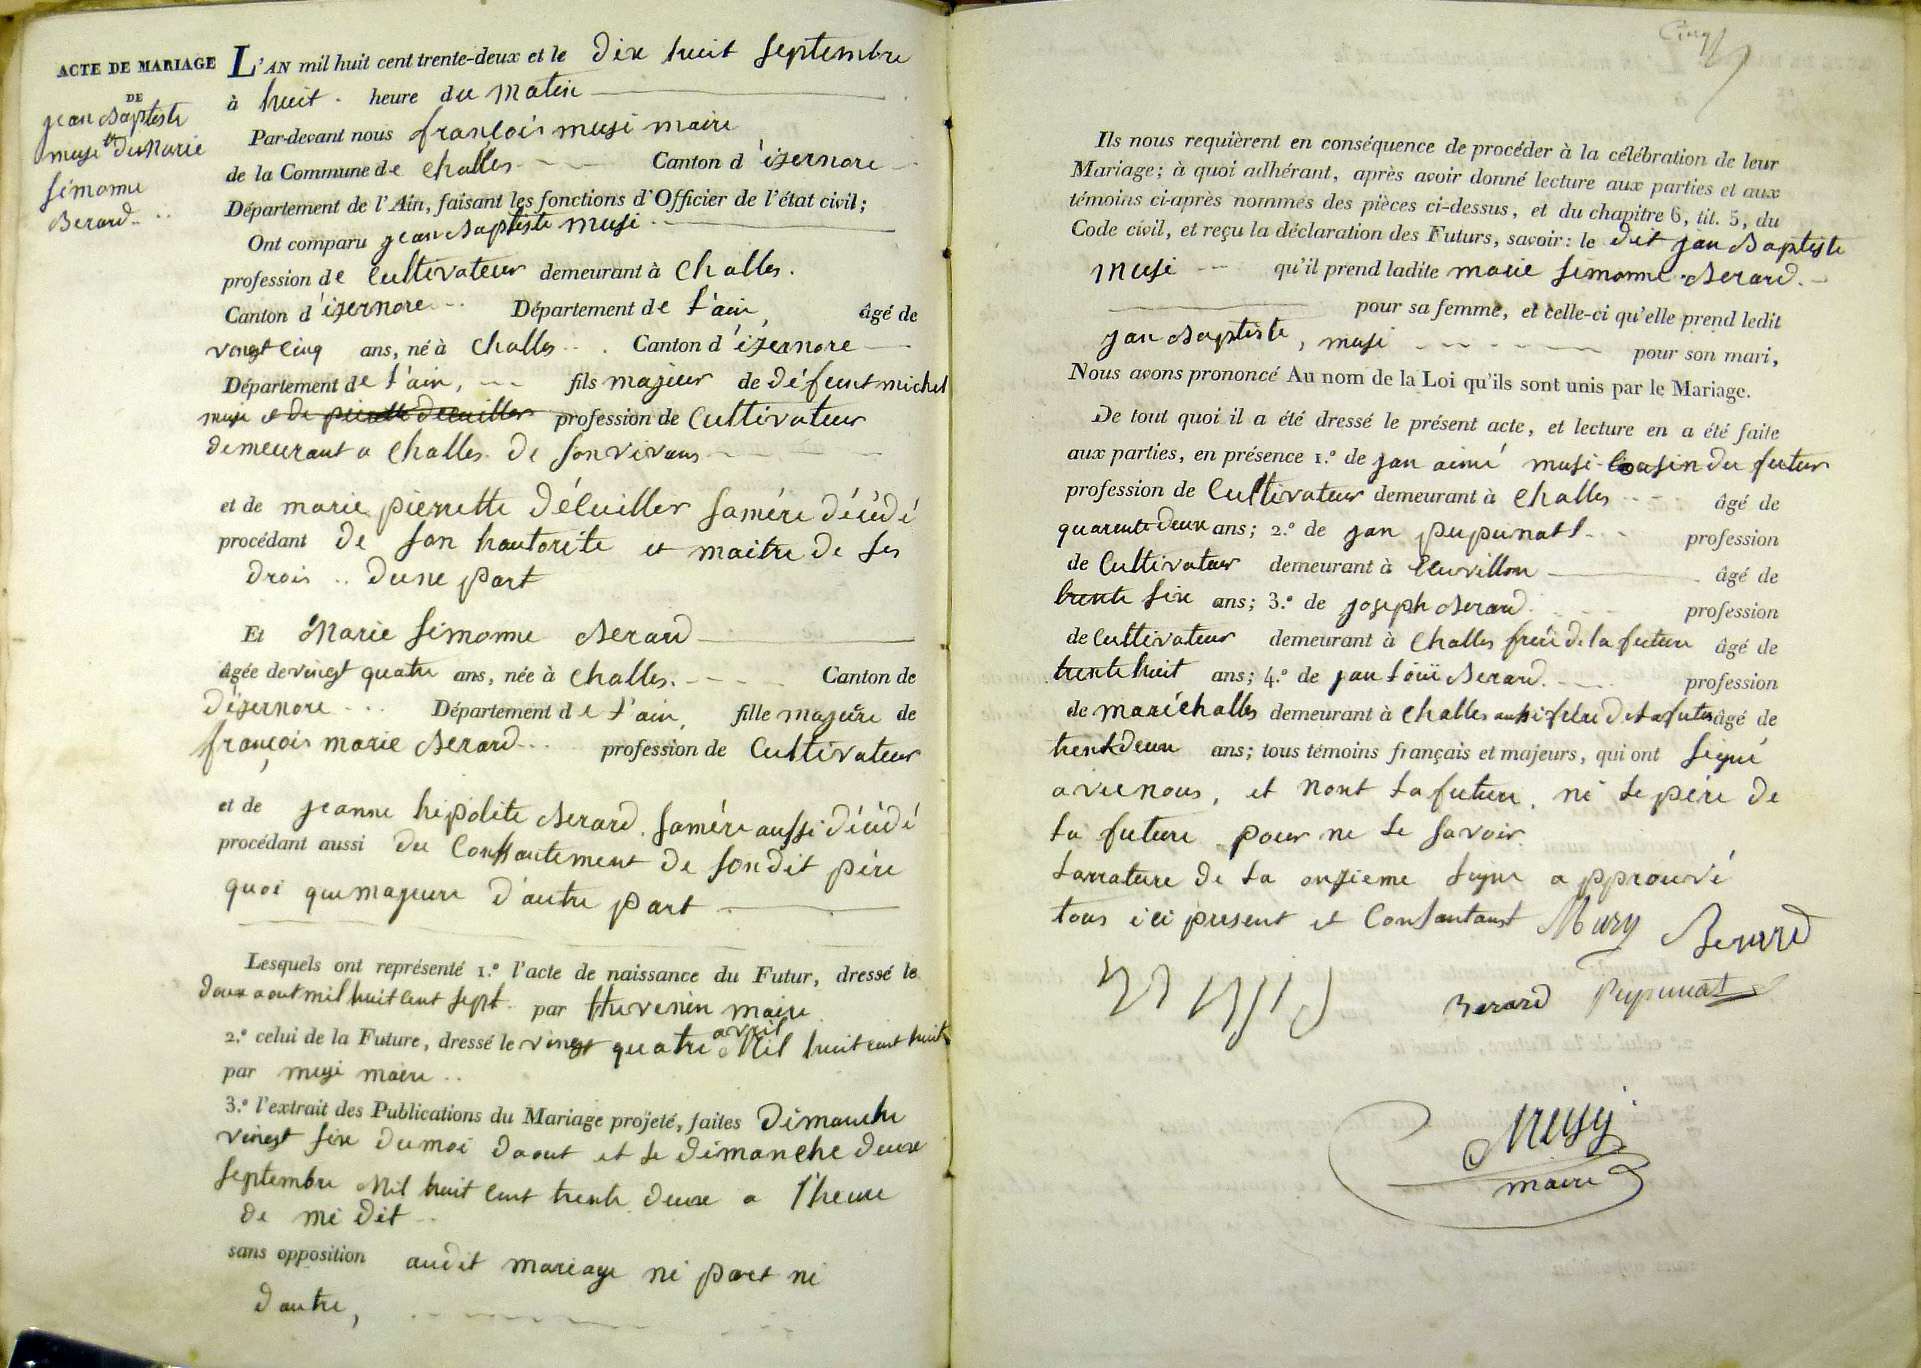 ACTE DE MARIAGE
DE
jean Baptiste
musi et de Marie
simonne
Berard
L'AN mil huit cent trente-deux et le dix huit septembre
à huit heure du matin
Par-devant nous françois musi maire
de la Commune de challes Canton d'izernore
Département de l'Ain, faisant les fonctions d'Officier de l'état civil;
Ont comparu jean Baptiste musi
profession de cultivateur demeurant à challes.
Canton d'izernore Département de l'ain, âgé de
vingt cinq ans, né à challes Canton d'izernore
Département de l'ain, fils majeur de défeunt michel
musi et de profession de cultivateur
demeurant a challes de son vivans
et de marie pierrette déluiller sa mére déçédé
procédant de son hautorite et maitre de ses
drois .. dune part
Et Marie simonne Berard
âgée de vingt quatre ans, née à challes. Canton de
d'izernore Département de l'ain, fille majeure de
françois marie Berard profession de cultivateur
et de jeanne hipolite Berard sa mére aussi déçédé
procédant aussi du consantement de son dit pére
quoi que majeure d'autre part
Lesquels ont représenté 1.º l'acte de naissance du Futur, dressé le
doux aout mil huit cent sept par thuvenin maire
2.º celui de la Future, dressé le vingt quatre avril Mil huit cent huit
par musi maire ..
3.º l'extrait des Publications du Mariage projeté, faites dimanche
vingt six du moi daout et le dimanche deux
septembre Mil huit cent trente deux a l'heure
de mi dit
sans opposition audit mariage ni part ni
dautre,
Cinq
Ils nous requièrent en conséquence de procéder à la célébration de leur
Mariage; à quoi adhérant, après avoir donné lecture aux parties et aux
témoins ci-après nommés des pièces ci-dessus, et du chapitre 6, tit. 5, du
Code civil, et reçu la déclaration des Futurs, savoir: le dit jan Baptiste
musi qu'il prend ladite marie simonne Berard.
pour sa femme, et celle-ci qu'elle prend ledit
jan Baptiste, musi pour son mari,
Nous avons prononcé Au nom de la Loi qu'ils sont unis par le Mariage.
De tout quoi il a été dressé le présent acte, et lecture en a été faite
aux parties, en présence 1.º de jan aimé musi cousin du futur
profession de cultivateur demeurant à challes âgé de
quarente deux ans; 2.º de jan pupunat profession
de cultivateur demeurant à âgé de
trente six ans; 3.º de joseph Berard profession
de cultivateur demeurant à challes frére de la future âgé de
trente huit ans; 4.º de jan loüi Berard. profession
de maréchalles demeurant à challes aussi de la future âgé de
trente deux ans; tous témoins français et majeurs, qui ont signé
avec nous, et nont la future, ni le pére de
la future pour ne le savoir.
larrature de la onzieme ligne approuvé
tous ici present et consantant Musy Berard
Berard Pupunat
Musy
maire